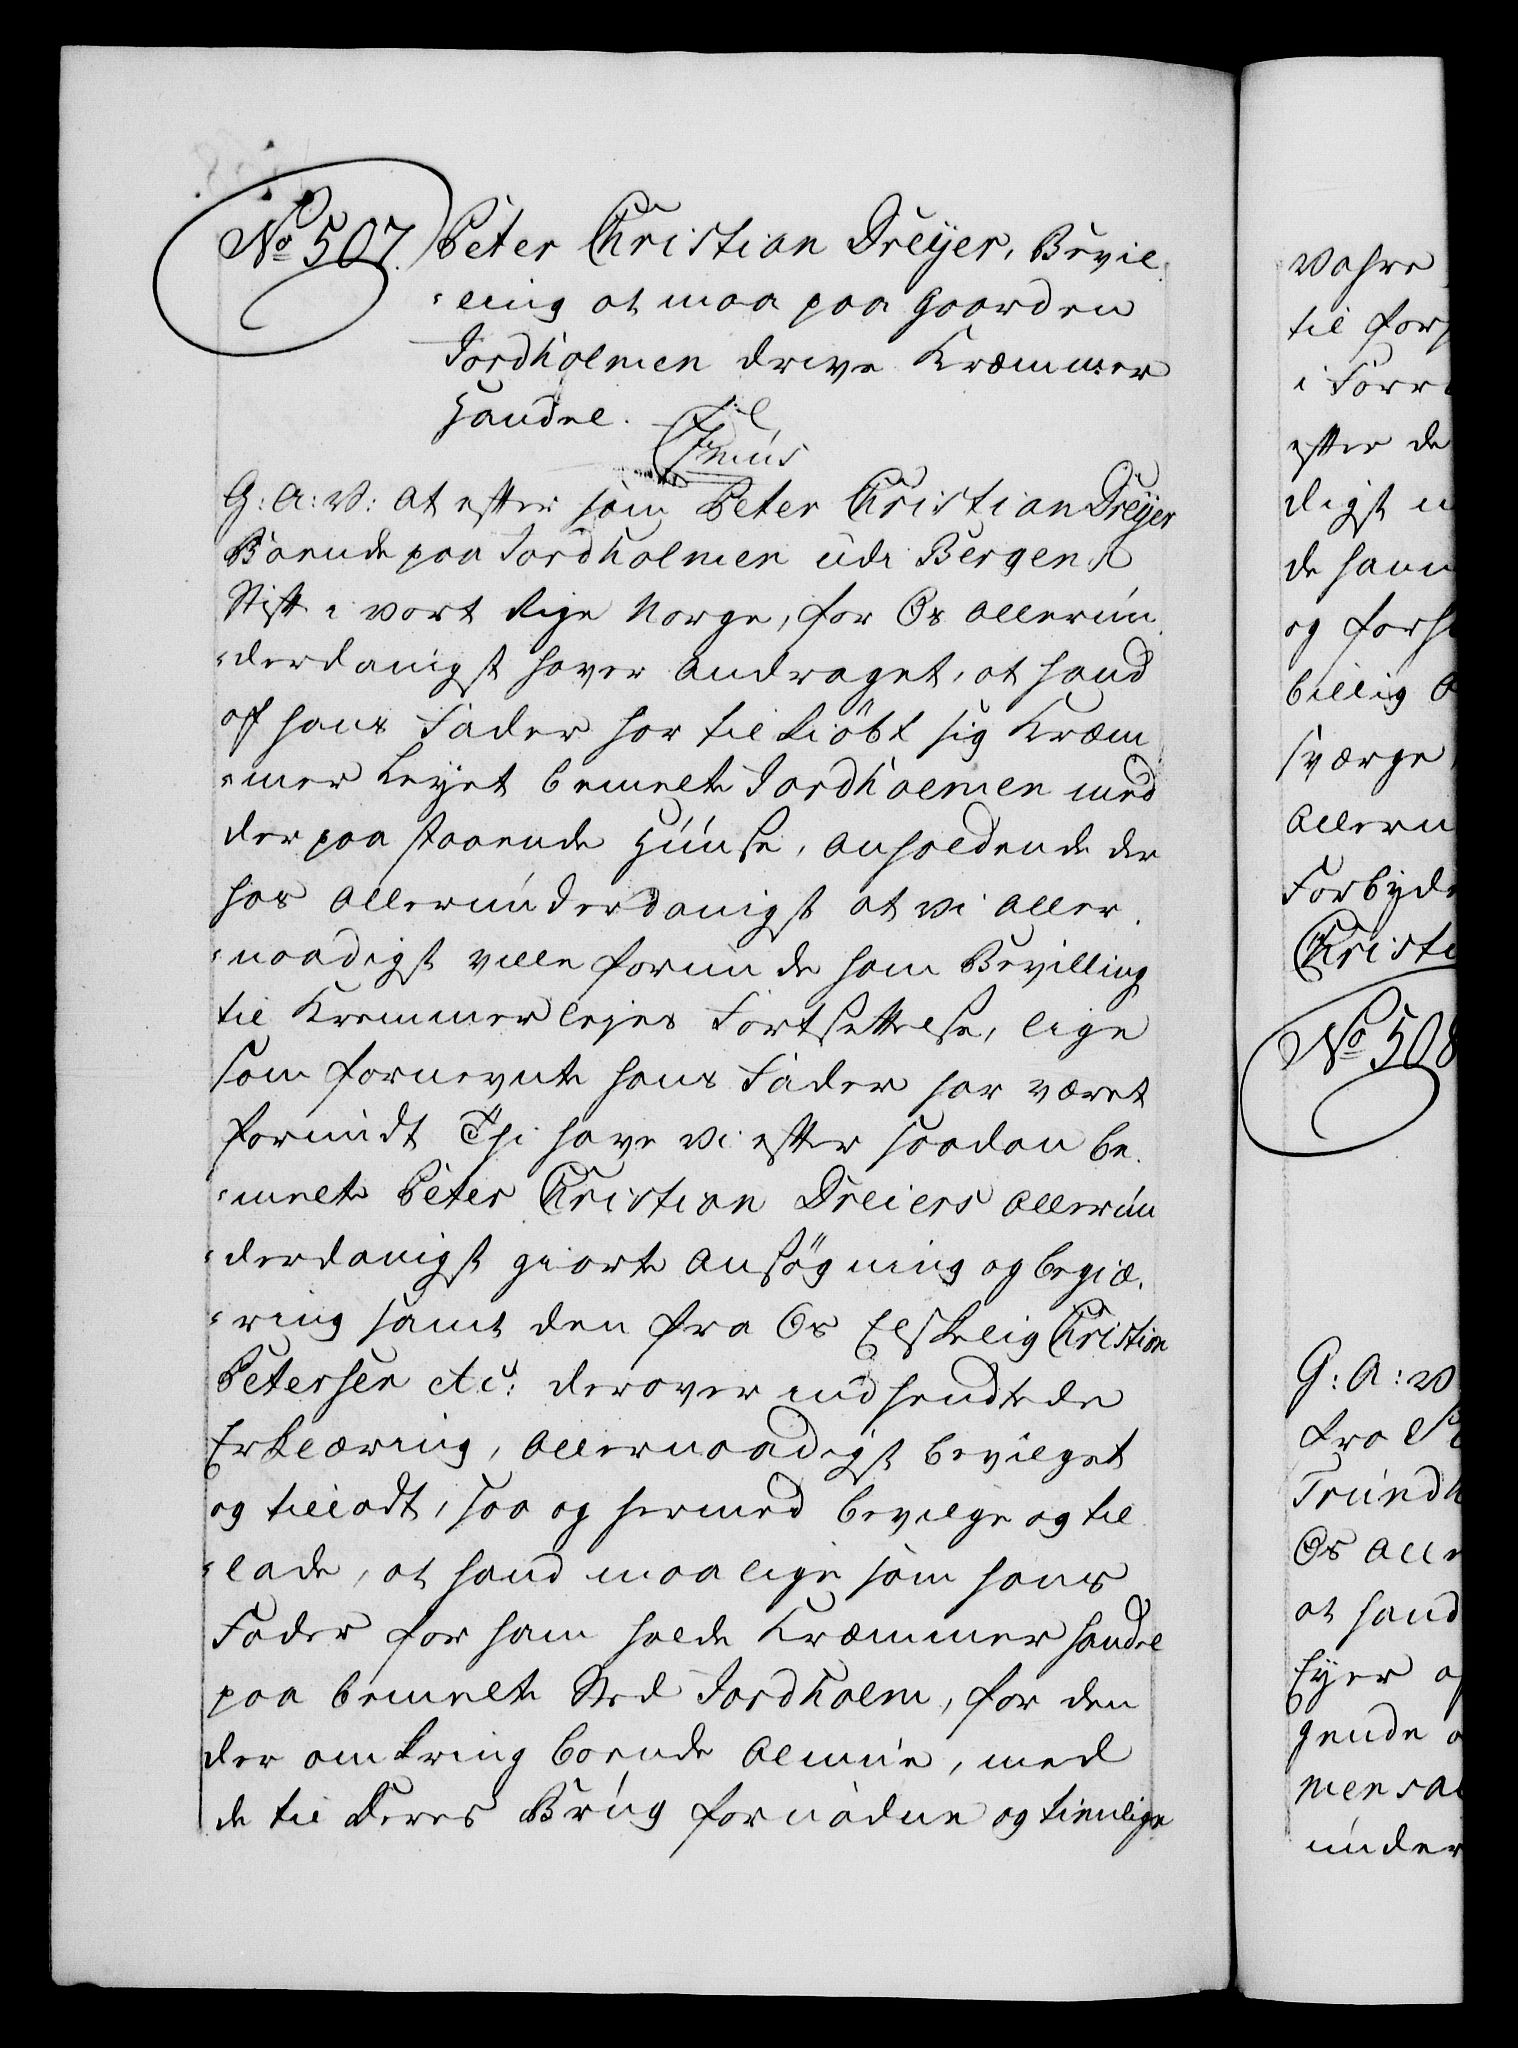 No 507. Peter Christian Dreyer, Bevil
=ling at maa paa Gaarden
Jordholmen drive Kræmmer
Handel.
G: A: V: At efter som Peter Christian Dreyer
Boende paa Jordholmen udi Bergens
Stift i vort Rige Norge, for Os allerun
=derdanigst haver andraget, at hand
af hans Fader har tilkiöbt sig Kræm
=mer Leyet bemelte Jordholmen med
der paa staaende Huuse, anholdende der
hos allerunderdanigst at vi aller
=naadigst ville forunde ham Bevilling
til Kremmerlejes Fortsettelse, lige
som fornevnte hans Fader har været
forundt Thi have vi efter saadan be
=melte Peter Christian Dreiers allerun
=derdanigst giorte Ansögning og begiæ
=ring samt den fra Os Elskelig Christian
Petersen etc: derover indsendtede
Erklæring, allernaadigst bevilget
og tilladt, saa og hermed bevilge og til
=lade, at hand maa lige som hans
Fader for ham holde Kræmmer handel
paa bemelte Sted Jordholm, for den
der omkring boende Almue, med
de til Deres Brug fornødne og tienlige
Vahre
til
i
efter de
digst
de ham
og
billig
sværge
Allern
Forbyde
Christi
No 508
G: A: V
fra
Trundh
Os Alle
at hand
Eyer
gende
men
under